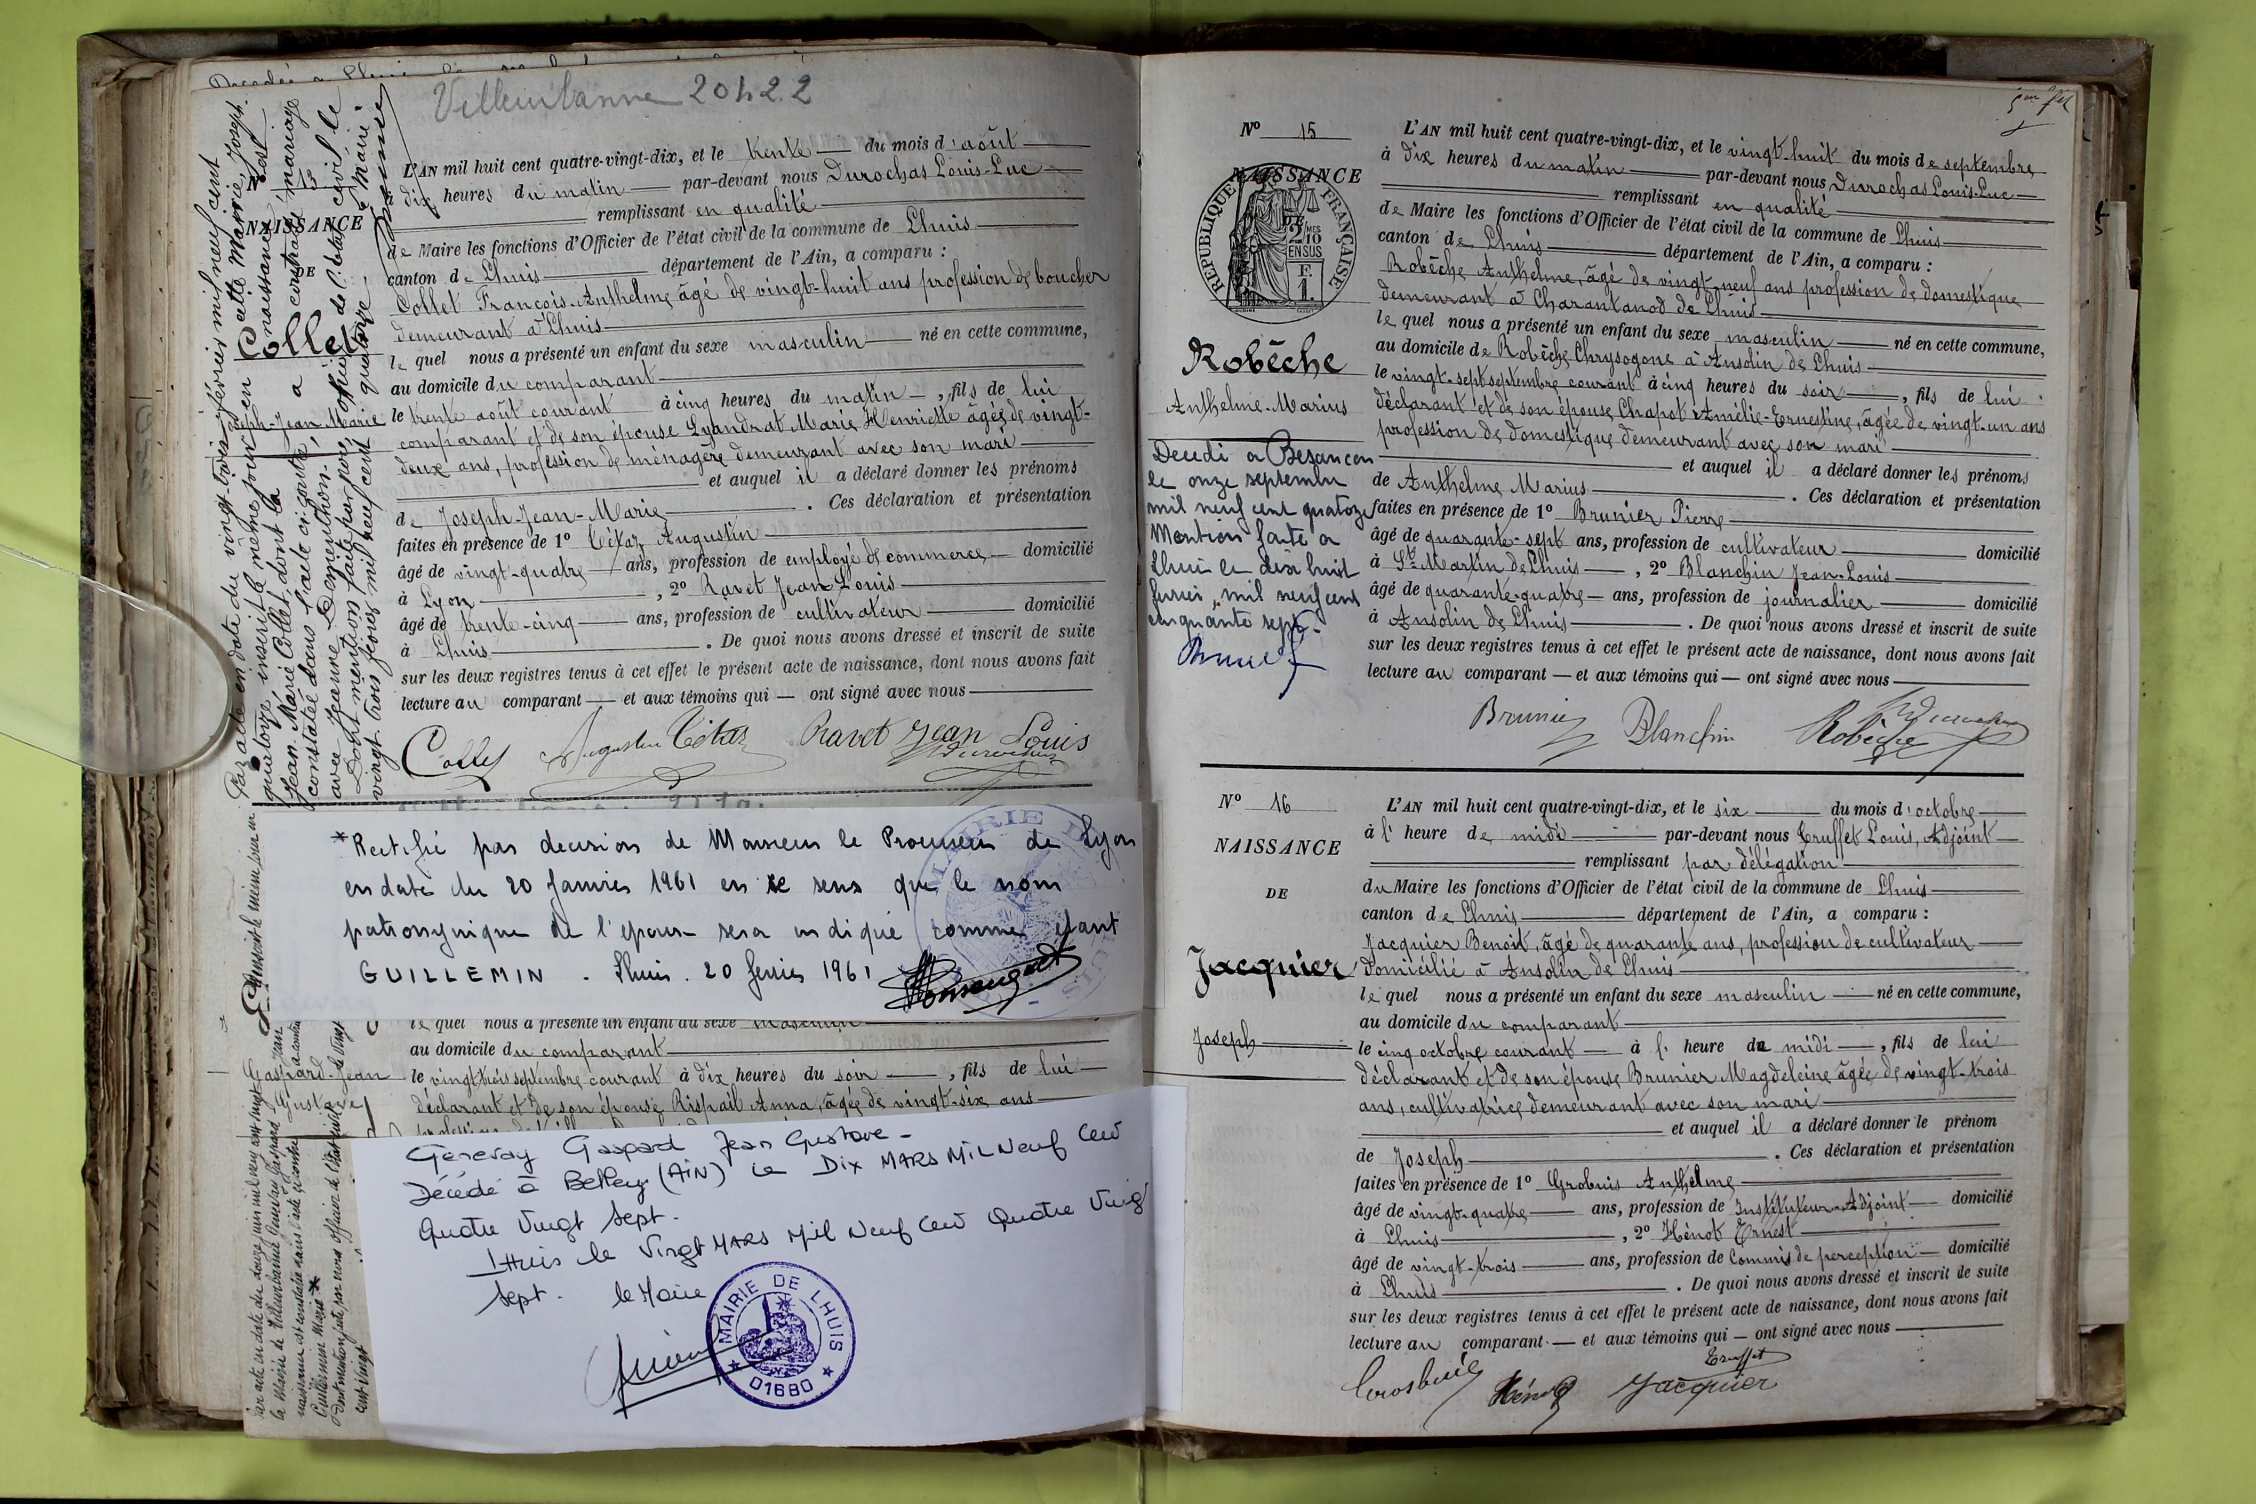 Villeurbanne 20 4 2 2
N° 13
NAISSANCE
DE
Collet
Joseph-Jean Marie
Par acte en date du vingt-trois février mil neuf cent
quatorze, inscrit le même jour en cette Mairie, Joseph-
Jean-Marie Collet, dont la naissance est
constatée dans l'acte ci-contre, a contracté mariage
avec Jeanne Demeunhon.
Dont mention faite par nous, officier de l'état civil le
vingt-trois février mil neuf cent quatorze, le Maire.
L'AN mil huit cent quatre-vingt-dix, et le trente du mois d'août
dix heures du matin par-devant nous Durochas Louis-Luc
remplissant en qualité
de Maire les fonctions d'Officier de l'état civil de la commune de Lhuis
canton de Lhuis département de l'Ain, a comparu :
Collet François-Anthelme âgé de vingt-huit ans profession de boucher
demeurant à Lhuis
le quel nous a présenté un enfant du sexe masculin né en cette commune,
au domicile du comparant
le trente août courant à cinq heures du matin, fils de lui
comparant et de son épouse Lyandrat Marie Henriette âgée de vingt-
deux ans, profession de ménagère demeurant avec son mari
et auquel il a déclaré donner les prénoms
de Joseph-Jean-Marie . Ces déclaration et présentation
faites en présence de 1° Tétaz Augustin
âgé de vingt-quatre ans, profession de employé de commerce domicilié
à Lyon , 2° Ravet Jean Louis
âgé de trente-cinq ans, profession de cultivateur domicilié
à Lhuis . De quoi nous avons dressé et inscrit de suite
sur les deux registres tenus à cet effet le présent acte de naissance, dont nous avons fait
lecture au comparant et aux témoins qui ont signé avec nous
Collet Augustin Tétaz Ravet Jean Louis
*Rectifié par decision de Monsieur le Procureur de Lyon
en date du 20 Janvier 1961 en ce sens que le nom
patronymique de l'epouse sera indiqué comme etant
GUILLEMIN . Lhuis . 20 fevrier 1961
le quel nous a présenté un enfant du sexe masculin
au domicile du comparant
Gaspard-Jean
Gustave
le vingt-trois septembre courant à dix heures du soir , fils de lui
déclarant et de son épouse Rispail Anna, âgée de vingt-six ans
Génevay Gaspard Jean Gustave -
Décédé à Belley (AIN) le Dix MARS Mil Neuf Cent
Quatre Vingt Sept.
Lhuis le Vingt MARS Mil Neuf Cent Quatre Vingt
Sept. le Maire
MAIRIE DE LHUIS
01680
N° 15
NAISSANCE
REPUBLIQUE FRANÇAISE
DE
2 MES
10
EN SUS
F.
1.
Robêche
Anthelme-Marius
Decedé a Besançon
le onze septembre
mil neuf cent quatorze
Mention faite a
Lhuis le dix huit
fevrier mil neuf cent
cinquante sept.
L'AN mil huit cent quatre-vingt-dix, et le vingt-huit du mois de septembre
à dix heures du matin par-devant nous Durochas Louis-Luc
remplissant en qualité
de Maire les fonctions d'Officier de l'état civil de la commune de Lhuis
canton de Lhuis département de l'Ain, a comparu :
Robêche Anthelme, âgé de vingt-neuf ans profession de domestique
demeurant à Charantanod de Lhuis
le quel nous a présenté un enfant du sexe masculin né en cette commune,
au domicile de Robêche Chrysogone à Ansolin de Lhuis
le vingt-sept septembre courant à cinq heures du soir , fils de lui
déclarant et de son épouse Chapot Amélie-Ernestine, âgée de vingt-un ans
profession de domestique demeurant avec son mari
et auquel il a déclaré donner les prénoms
de Anthelme Marius . Ces déclaration et présentation
faites en présence de 1° Brunier Pierre
âgé de quarante-sept ans, profession de cultivateur domicilié
à St Martin de Lhuis , 2° Blanchin Jean-Louis
âgé de quarante-quatre ans, profession de journalier domicilié
à Ansolin de Lhuis . De quoi nous avons dressé et inscrit de suite
sur les deux registres tenus à cet effet le présent acte de naissance, dont nous avons fait
lecture au comparant et aux témoins qui ont signé avec nous
Brunier Blanchin Robêche
N° 16
NAISSANCE
DE
Jacquier
Joseph
L'AN mil huit cent quatre-vingt-dix, et le six du mois d'octobre
à l'heure de midi par-devant nous Truffet Louis, Adjoint
remplissant par délégation
du Maire les fonctions d'Officier de l'état civil de la commune de Lhuis
canton de Lhuis département de l'Ain, a comparu :
Jacquier Benoit, âgé de quarante ans, profession de cultivateur
domicilié à Ansolin de Lhuis
le quel nous a présenté un enfant du sexe masculin né en cette commune,
au domicile du comparant
le cinq octobre courant à l'heure de midi , fils de lui
déclarant et de son épouse Brunier Magdeleine âgée de vingt-trois
ans, cultivatrice demeurant avec son mari
et auquel il a déclaré donner le prénom
de Joseph . Ces déclaration et présentation
faites en présence de 1° Grobuis Anthelme
âgé de vingt-quatre ans, profession de Instituteur-Adjoint domicilié
à Lhuis , 2° Hénot Ernest
âgé de vingt-trois ans, profession de Commis de perception domicilié
à Lhuis . De quoi nous avons dressé et inscrit de suite
sur les deux registres tenus à cet effet le présent acte de naissance, dont nous avons fait
lecture au comparant et aux témoins qui ont signé avec nous
Truffet
Hénot Jacquier